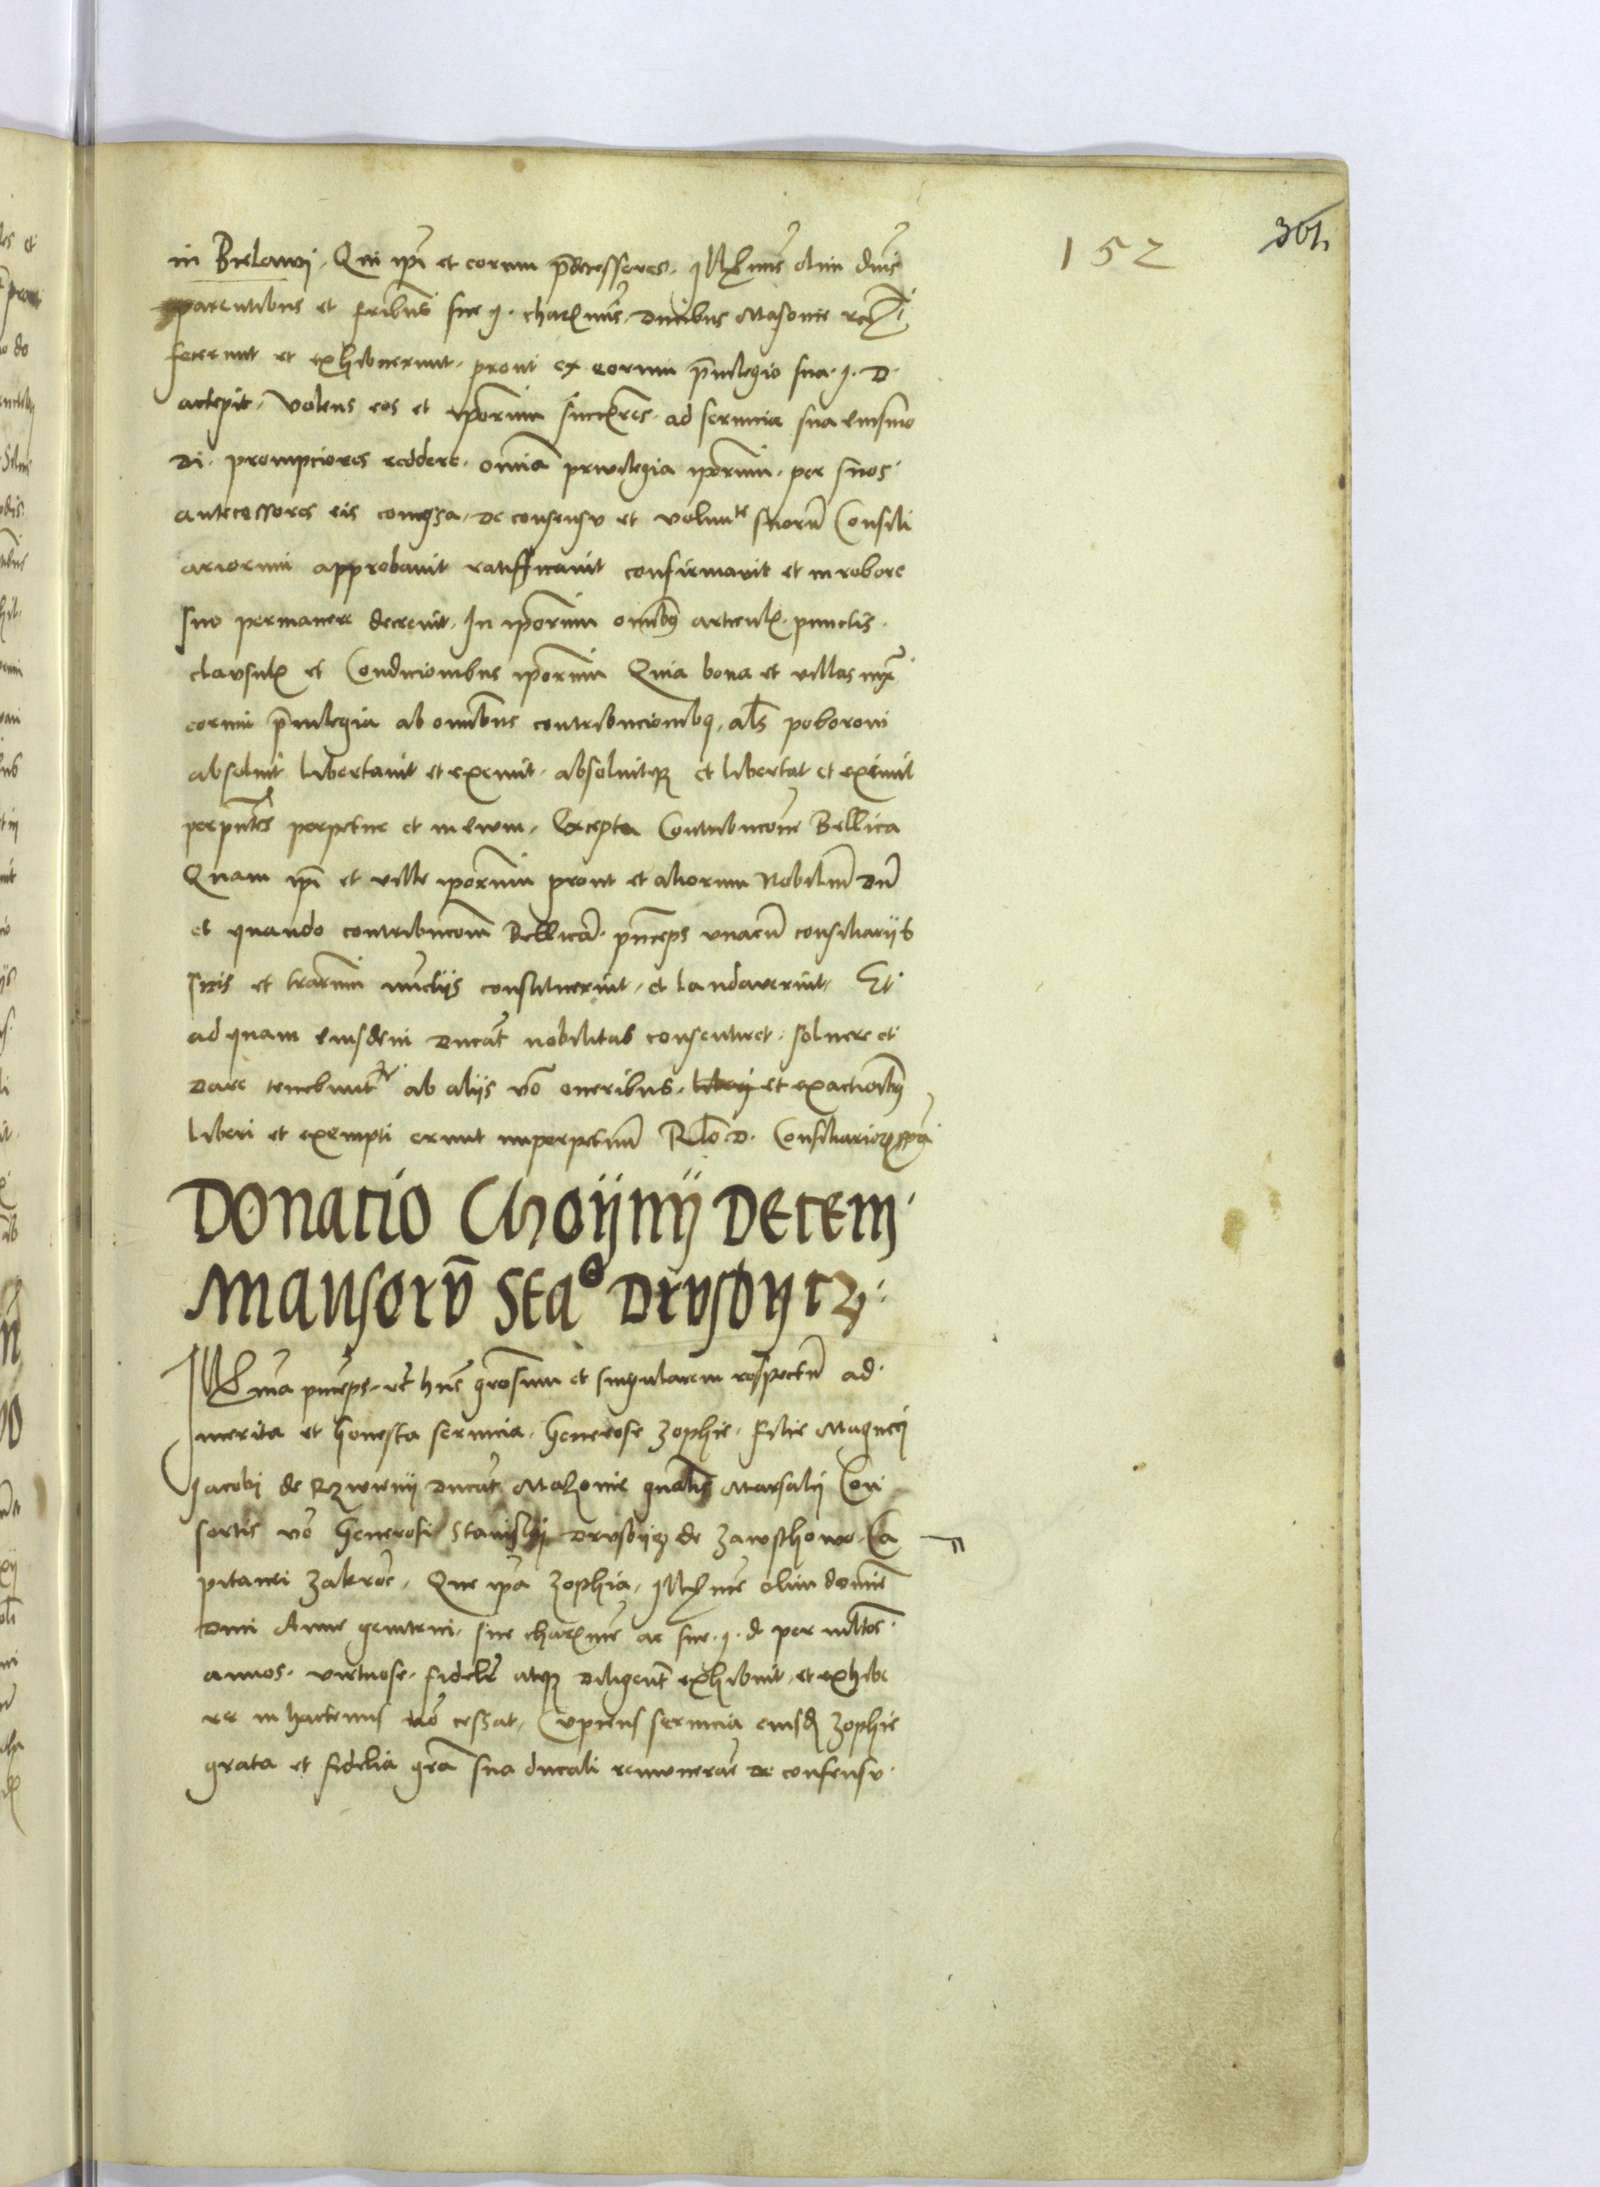 152
361
in Bielawj. Qui ipi et eorum pdecessores. Illmis olim dnis
parentibus et fribus sue I. charmis. ducibus Masouie
fecerunt et exhibuerunt. prout ex eorum priuilegio sua. I. D.
accepit. Volens eos et iporum successores. ad seruicia sua eiusmo
di. prompciores reddere. omnia priuilegia iporum. per suos
antecessores eis concessa, de consensu et volunte suorum Consili
ariorum approbauit ratifficauit confirmauit et in robore
suo permanere decreuit. In iporum omnibus articulis. punctis.
clausulis et Condicionibus iporum Quia bona et villas iuxta
eorum priuilegia ab omnibus contribucionibus, als poborovi
absoluit libertauit et exemit. absoluitque et libertat et eximit
per pntes perpetue et in ewum. Excepta Contribucione Bellica
Quam ipi et ville iporum prout et aliorum Nobilium dum
et quando contribucionem Bellicam. princeps unacum consiliariis
suis et trarum nunctiis constituerint, et laudauerint. Et
ad quam eiusdem ducatus nobilitas consentiret. soluere et
dare tenebuntur ab aliis vero oneribus. et exactionibus
liberi et exempti erunt imperpetuum Rlo D. Consiliariorum
Donacio Choijnij Decem
Mansoru Stao Drusbijcz
Illma princeps. respectum ad
merita et honesta seruicia. Generose Zophie. filie Magnifici
Jacobi de Rzwienij ducatus Mazouie gnalis Marsalij Con
sortis vero Generosi Stanislai Drusbijcz de Zawschowo Ca
pitanei Zakroc. Que ipa Zophia. Illme olim domine
dni Anne genitrici. sue charme ac sue. I. d per multos
annos. virtuose. fideliter atque diligenter exhibuit. et exhibe
re in hactenus non cessat. Cupiens seruicia eiusdem Zophie
grata et fidelia gra sua ducali remunerare de consensu